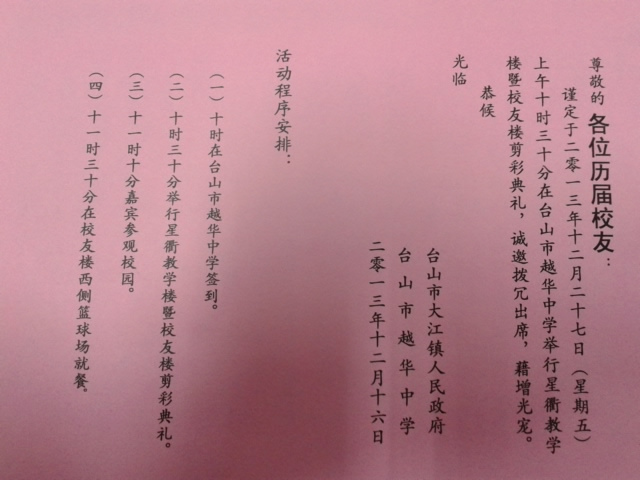 尊敬的 各位历届校友：
谨定于二零一三年十二月二十七日（星期五）
上午十时三十分在台山市越华中学举行星衢教学
楼暨校友楼剪彩典礼，诚邀拨冗出席，藉增光宠。
恭候
光临
台山市大江镇人民政府
台山市越华中学
二零一三年十二月十六日
活动程序安排：
（一）十时在台山市越华中学签到。
（二）十时三十分举行星衢教学楼暨校友楼剪彩典礼。
（三）十一时十分嘉宾参观校园。
（四）十一时三十分在校友楼西侧篮球场就餐。